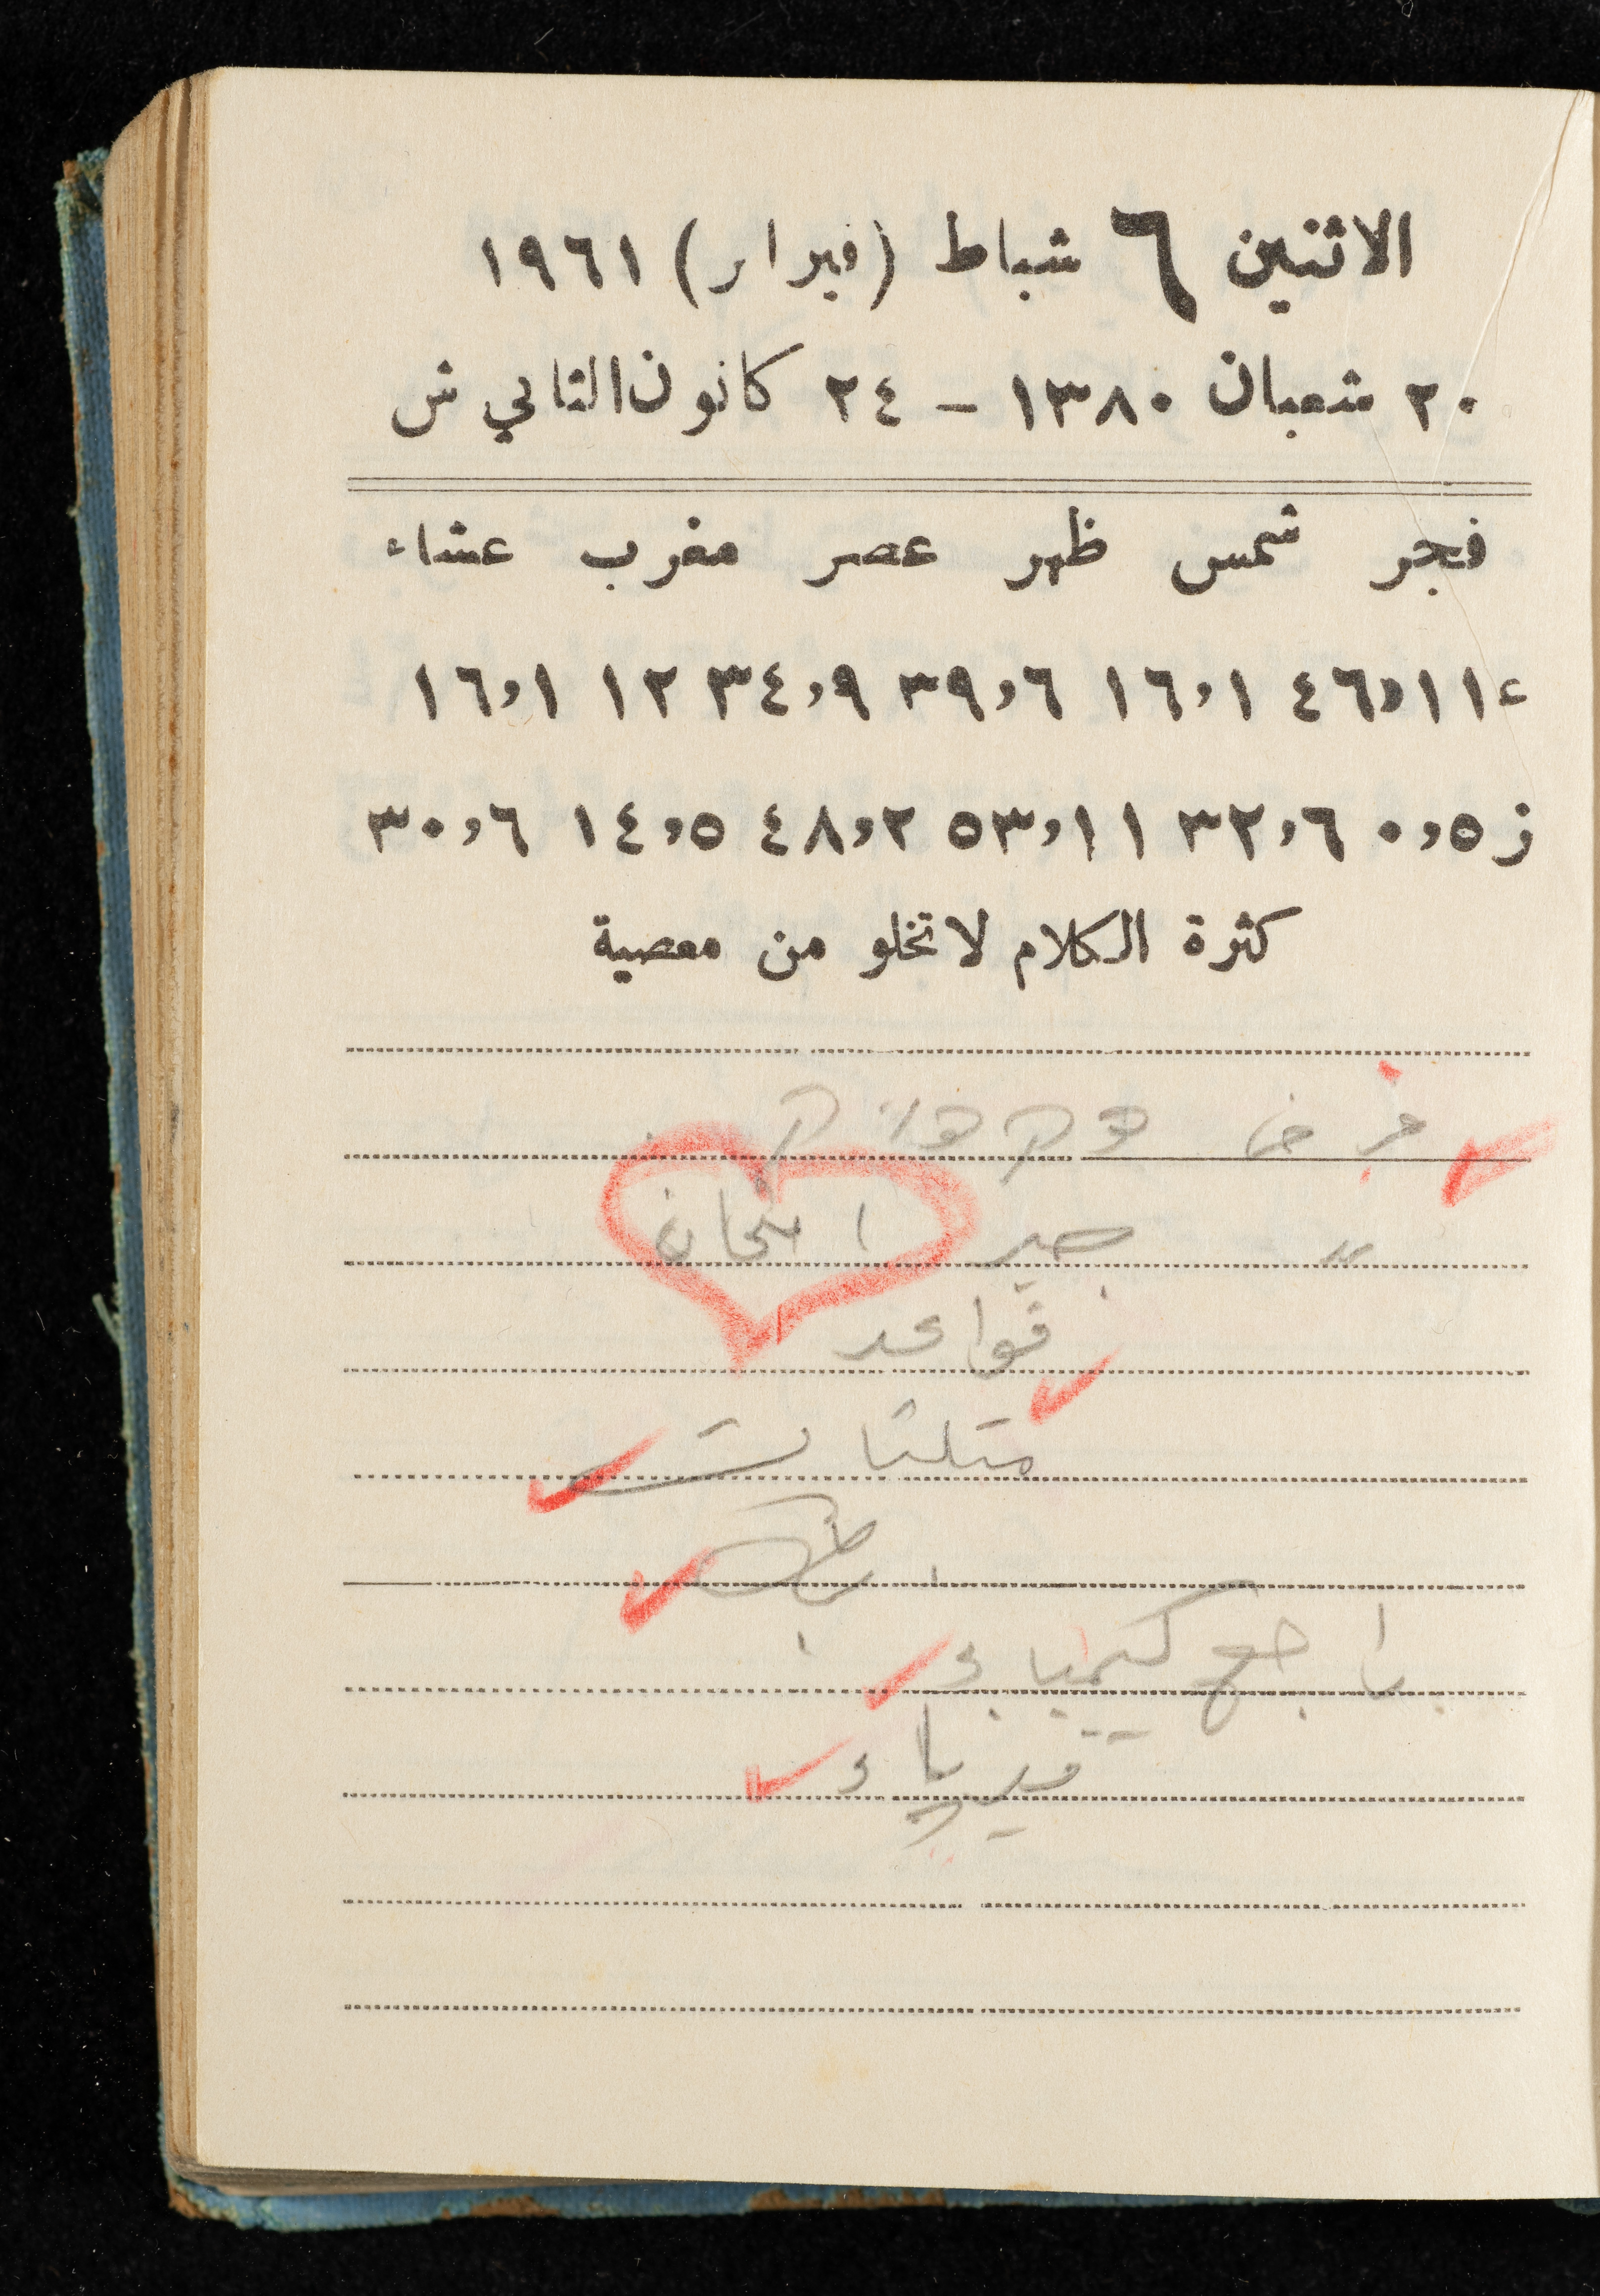 الاثنين ٦ شباط (فبراير) ١٩٦١
٢٠ شعبان ١٣٨٠ - ٢٤ كانون الثاني ش
فجر شمس ظهر عصر مغرب عشاء
ء ١١،٤٦ ١،١٦ ٦،٣٩ ٩،٣٤ ١٢ ١،١٦
ز ٥،٠ ٦،٣٢ ١١،٥٣ ٢،٤٨ ٥،١٤ ٦،٣٠
كثرة الكلام لا تخلو من معصية
فرض
〃 جبر امتحان
قواعد
مثلثات
راجع كيمياء
فيزياء